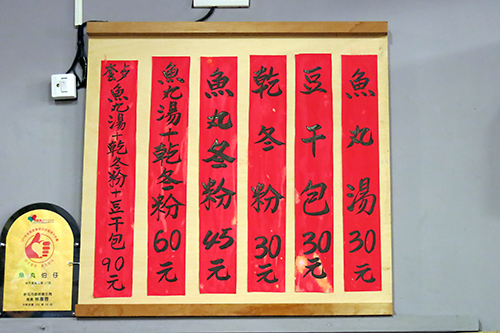 魚丸湯30元
豆干包30元
乾冬粉30元
魚丸冬粉45元
魚丸湯+乾冬粉60元
套步魚丸湯+乾冬粉+豆干包90元
魚丸伯仔